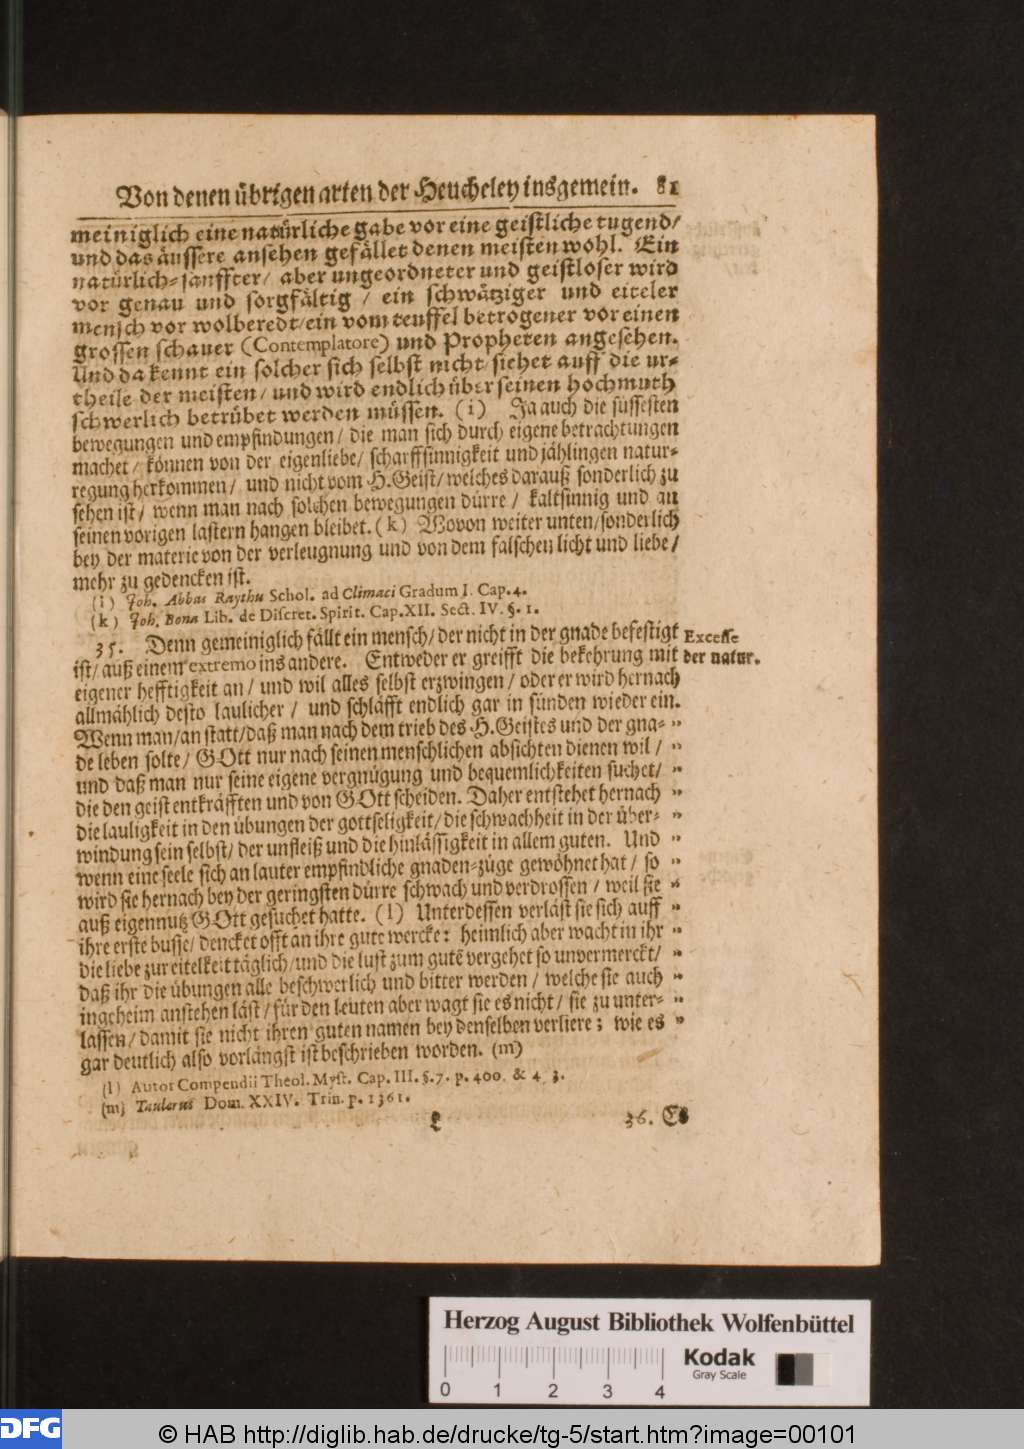 Von denen übrigen arten der Heucheley insgemein. 81
meiniglich eine natürliche gabe vor eine geistliche tugend/
und das äussere ansehen gefället denen meisten wohl. Ein
natürlich-sanffter/ aber ungeordneter und geistloser wird
vor genau und sorgfältig / ein schwätziger und eiteler
mensch vor wolberedt/ ein vom teuffel betrogener vor einen
grossen schauer (Contemplatore) und Propheten angesehen.
Und da kennt ein solcher sich selbst nicht/ siehet auff die ur-
theile der meisten/ und wird endlich über seinen hochmuth
schwerlich betrübet werden müssen. (i) Ja auch die süssesten
bewegungen und empfindungen/ die man sich durch eigene betrachtungen
machet/ können von der eigenliebe/ scharffsinnigkeit und jählingen natur-
regung herkommen/ und nicht vom H. Geist/ welches darauß sonderlich zu
sehen ist/ wenn man nach solchen bewegungen dürre/ kaltsinnig und an
seinen vorigen lastern hangen bleibet. (k) Wovon weiter unten/ sonderlich
bey der materie von der verleugnung und von dem falschen licht und liebe/
mehr zu gedencken ist.
(i) Joh. Abbas Raythu Schol. ad Climaci Gradum I. Cap. 4.
(k) Joh. Bona Lib. de Discret. Spirit. Cap. XII. Sect. IV. §. 1.
35. Denn gemeiniglich fällt ein mensch/ der nicht in der gnade befestigt
Excesse
ist/ auß einem extremo ins andere. Entweder er greifft die bekehrung mit
der natur.
eigener hefftigkeit an/ und wil alles selbst erzwingen/ oder er wird hernach
allmählich desto laulicher/ und schläfft endlich gar in sünden wieder ein.
Wenn man/ an statt/ daß man nach dem trieb des H. Geistes und der gna- „
de leben solte/ GOtt nur nach seinen menschlichen absichten dienen wil/ „
und daß man nur seine eigene vergnügung und bequemlichkeiten suchet/ „
die den geist entkräfften und von GOtt scheiden. Daher entstehet hernach „
die lauligkeit in den übungen der gottseligkeit/ die schwachheit in der über- „
windung sein selbst/ der unfleiß und die hinlässigkeit in allem guten. Und „
wenn eine seele sich an lauter empfindliche gnaden-züge gewöhnet hat/ so „
wird sie hernach bey der geringsten dürre schwach und verdrossen/ weil sie „
auß eigennutz GOtt gesuchet hatte. (l) Unterdessen verläst sie sich auff „
ihre erste busse/ dencket offt an ihre gute wercke: heimlich aber wacht in ihr „
die liebe zur eitelkeit täglich/ und die lust zum gutē vergehet so unvermerckt/ „
daß ihr die übungen alle beschwerlich und bitter werden/ welche sie auch „
ingeheim anstehen läst/ für den leuten aber wagt sie es nicht/ sie zu unter- „
lassen/ damit sie nicht ihren guten namen bey denselben verliere; wie es „
gar deutlich also vorlängst ist beschrieben worden. (m)
(l) Autor Compendii Theol. Myst. Cap. III. §. 7. p. 400. &
(m) Taulerus Dom. XXIV. Trin. p. 1361.
L 36. Es
Herzog August Bibliothek Wolfenbüttel
Kodak
Gray Scale
0 1 2 3 4
DFG © HAB http://diglib.hab.de/drucke/tg-5/start.htm?image=00101